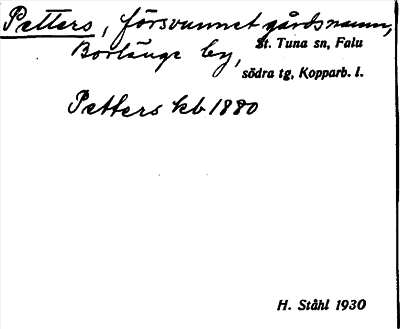 Petters, försvunnet gårdsnamn,
Borlänge by, St. Tuna sn, Falu
södra tg, Kopparb. l.
Petters kb 1880
H. Ståhl 1930